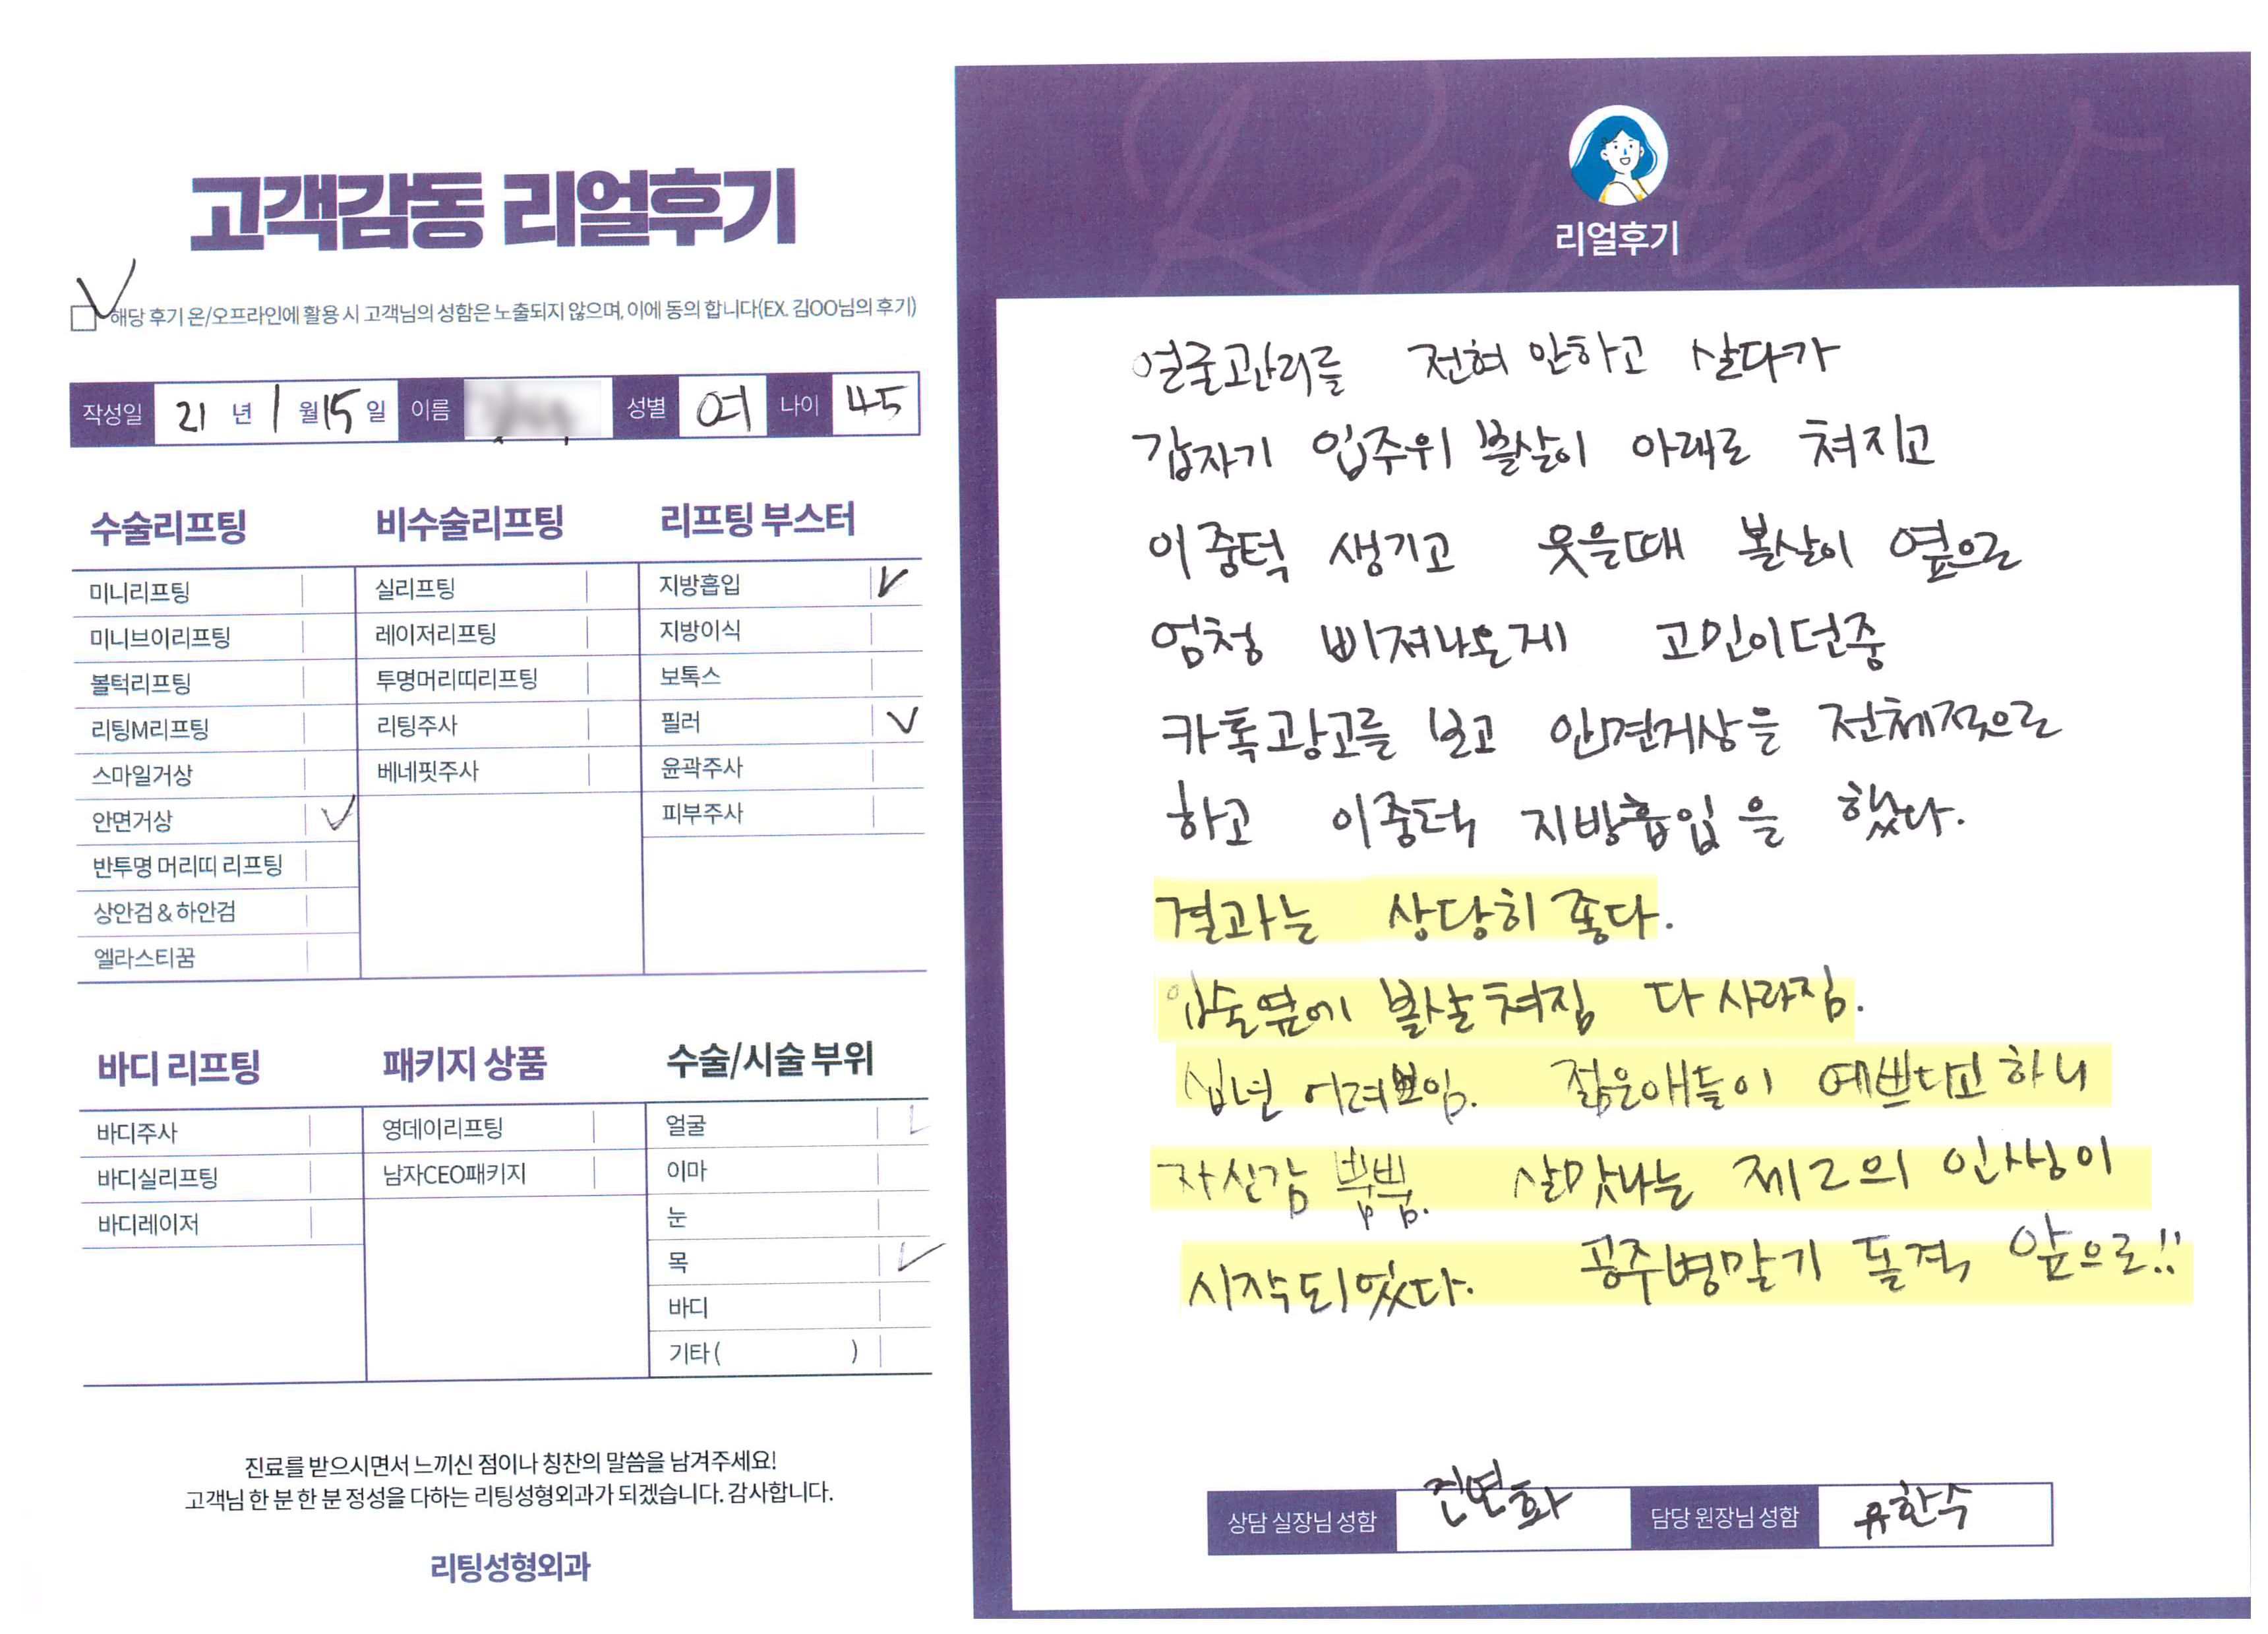 고객감동 리얼후기
해당 후기 온/오프라인에 활용 시 고객님의 성함은 노출되지 않으며, 이에 동의 합니다(EX. 김OO님의 후기)
작성일 21 년 1 월 15 일 이름 성별 여 나이 45
수술리프팅
미니리프팅
미니브이리프팅
볼턱리프팅
리팅M리프팅
스마일거상
안면거상
반투명 머리띠 리프팅
상안검 & 하안검
엘라스티꿈
비수술리프팅
실리프팅
레이저리프팅
투명머리띠리프팅
리팅주사
베네핏주사
리프팅 부스터
지방흡입
지방이식
보톡스
필러
윤곽주사
피부주사
바디 리프팅
바디주사
바디실리프팅
바디레이저
패키지 상품
영데이리프팅
남자CEO패키지
수술/시술 부위
얼굴
이마
눈
목
바디
기타 ( )
진료를 받으시면서 느끼신 점이나 칭찬의 말씀을 남겨주세요!
고객님 한 분 한 분 정성을 다하는 리팅성형외과가 되겠습니다. 감사합니다.
리팅성형외과
Review
리얼후기
얼굴관리를 전혀 안하고 살다가
갑자기 입주위 볼살이 아래로 쳐지고
이중턱 생기고 웃을때 볼살이 옆으로
엄청 삐져나온게 고민이던중
카톡광고를 보고 안면거상을 전체적으로
하고 이중턱 지방흡입을 했다.
결과는 상당히 좋다.
입술옆에 볼살쳐짐 다 사라짐.
십년 어려보임. 젊은애들이 예쁘다고 하니
자신감 뿜뿜. 살맛나는 제2의 인생이
시작되었다. 공주병말기 돌격 앞으로!!
상담 실장님 성함 진연화 담당 원장님 성함 유한수